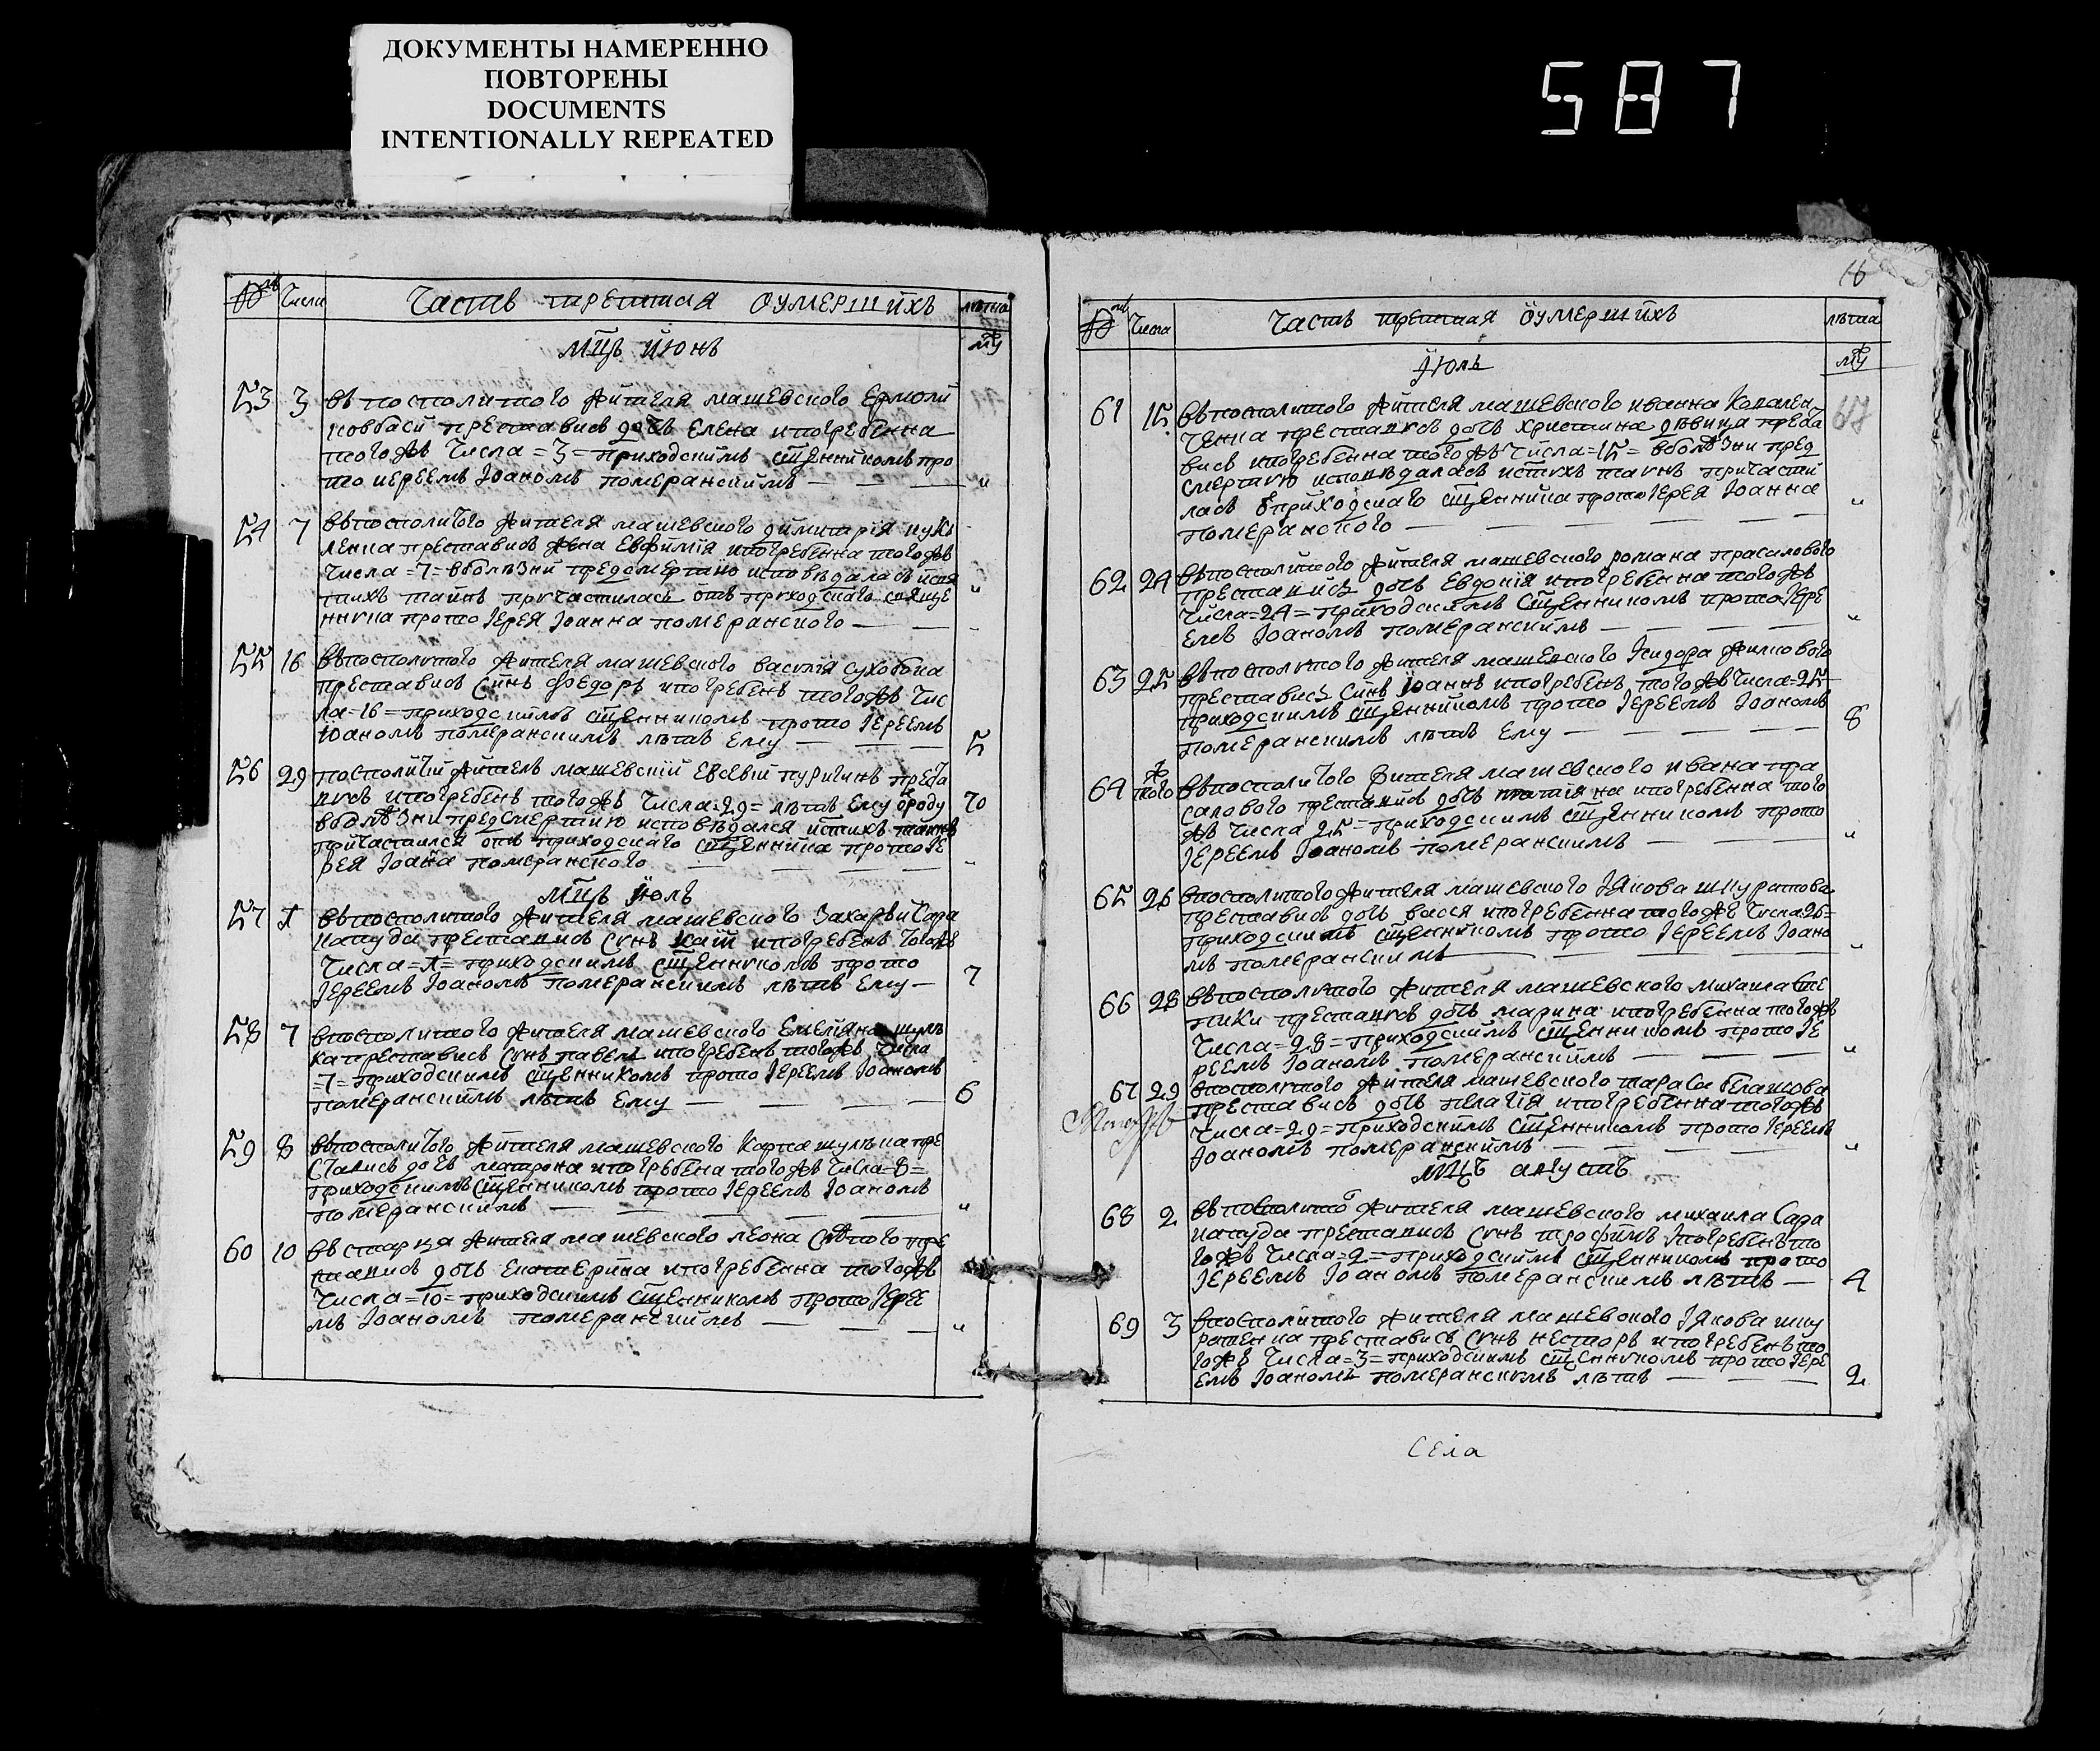 ДОКУМЕНТЫ НАМЕРЕННО
ПОВТОРЕНЫ
DOCUMENTS
INTENTIONALLY REPEATED
587
Числа Часть треттая оумершихъ лѣта
мц҃ъ июнь
53 3 въ посполитого жителя машевского Ермоли
ковбаси преставись дочь Елена и погребенна
того жъ числа =3= приходскимъ сщ҃енникомъ про
то иереемъ Іоаномъ померанскимъ — — — „
54 7 въ посполитого жителя машевского димитрія
ленка преставись жена Евфимія и погребенна того жъ
числа =7= в болѣзни пред смертию исповѣдалась и
тихъ таинъ причастилась отъ приходского свяще „
нника прото Іерея Іоанна померанского — —
55 16 въ посполитого жителя машевского василія сухобока
преставись синъ федоръ и погребенъ того жъ чис
ла =16= приходскимъ сщ҃енникомъ прото Іереемъ
Іоаномъ померанскимъ лѣтъ Ему — — — 5
56 29 посполитій житель машевскій Евсевій преста
вись и погребенъ того жъ числа 29= лѣтъ Ему 70
в болѣзни пред смертию исповѣдался и с͠тихъ таинъ
причастился отъ приходского сщ҃енника прото Іе
рея Іоана померанского — — — „
мц҃ъ июль
57 въ посполитого жителя машевского Захарьи Сара
напуда преставись синъ и погребенъ того жъ
числа приходскимъ сщ҃енникомъ прото
Іереемъ Іоаномъ померанскимъ лѣтъ Ему — 7
58 7 в посполитого жителя машевского Емеліяна шуля
ка преставись синъ павелъ и погребенъ того жъ числа
=7= приходскимъ сщ҃енникомъ прото Іереемъ Іоаномъ
померанскимъ лѣтъ Ему — — — — 6
59 8 въ посполитого жителя машевского Карпа шуляка пре
ставись дочь матрона и погребена того жъ числа =8=
приходскимъ сщ҃енникомъ прото Іереемъ Іоаномъ
померанскимъ — — — — „
60 10 въ старца жителя машевского леона пре
ставись дочь Екатерина и погребенна того жъ
числа =10= приходскимъ сщ҃енникомъ прото Іерее
мъ Іоаномъ померанскимъ — — — „
16
Числа Часть треттая оумершихъ лѣта
Июль
61 15 въ посполитого жителя машевского иванна Ковален
ченка преставись дочь христина дѣвица преста
вись и погребенна того жъ числа =15= в болѣзни пред
смертию исповѣдалась и с͠тихъ таинъ причасти
лась приходского сщ҃енника прото Іерея Іоанна „
померанского — — — — —
62 24 въ посполитого жителя машевского романа прасалового
преставись дочь Евдокія и погребенна того жъ
числа =24= приходскимъ сщ҃енникомъ прото Іере
емъ Іоаномъ померанскимъ — — — — „
63 25 въ посполитого жителя машевского Исидора
преставись синъ Іоаннъ и погребенъ того жъ числа =25=
приходскимъ сщ҃енникомъ прото Іереемъ Іоаномъ
померанскимъ лѣтъ Ему — — — — — 8
64 того ж въ посполитого жителя машевского ивана пра
салового преставись дочь и погребенна того
жъ числа 25= приходскимъ сщ҃енникомъ прото
Іереемъ Іоаномъ померанскимъ — — — „
65 26 в посполитого жителя машевского Іякова шкуратова
преставись дочь васся и погребенна того жъ числа 26=
приходскимъ сщ҃енникомъ прото Іереемъ Іоано
мъ померанскимъ — — — — „
66 28 въ посполитого жителя машевского михаила
преставись дочь марина и погребенна того жъ
числа =28= приходскимъ сщ҃енникомъ прото Іе
реемъ Іоаномъ померанскимъ — — — „
67 29 в посполитого жителя машевского тараса белашова
преставись дочь пелагія и погребенна того жъ
числа =29= приходскимъ сщ҃енникомъ прото Іереемъ
Іоаномъ померанскимъ — — — — „
мц҃ъ августъ
68 2 въ посполито жителя машевского михаила Сара
напуда преставись синъ трофимъ и погребенъ то
го жъ числа =2= приходскимъ сщ҃енникомъ прото
Іереемъ Іоаномъ померанскимъ лѣтъ — 4
69 3 в посполитого жителя машевского Іякова шку
ратенка преставись синъ несторъ и погребенъ то
го жъ числа =3= приходскимъ сщ҃енникомъ прото Іере
емъ Іоаномъ померанскимъ лѣтъ — — — 2
Села